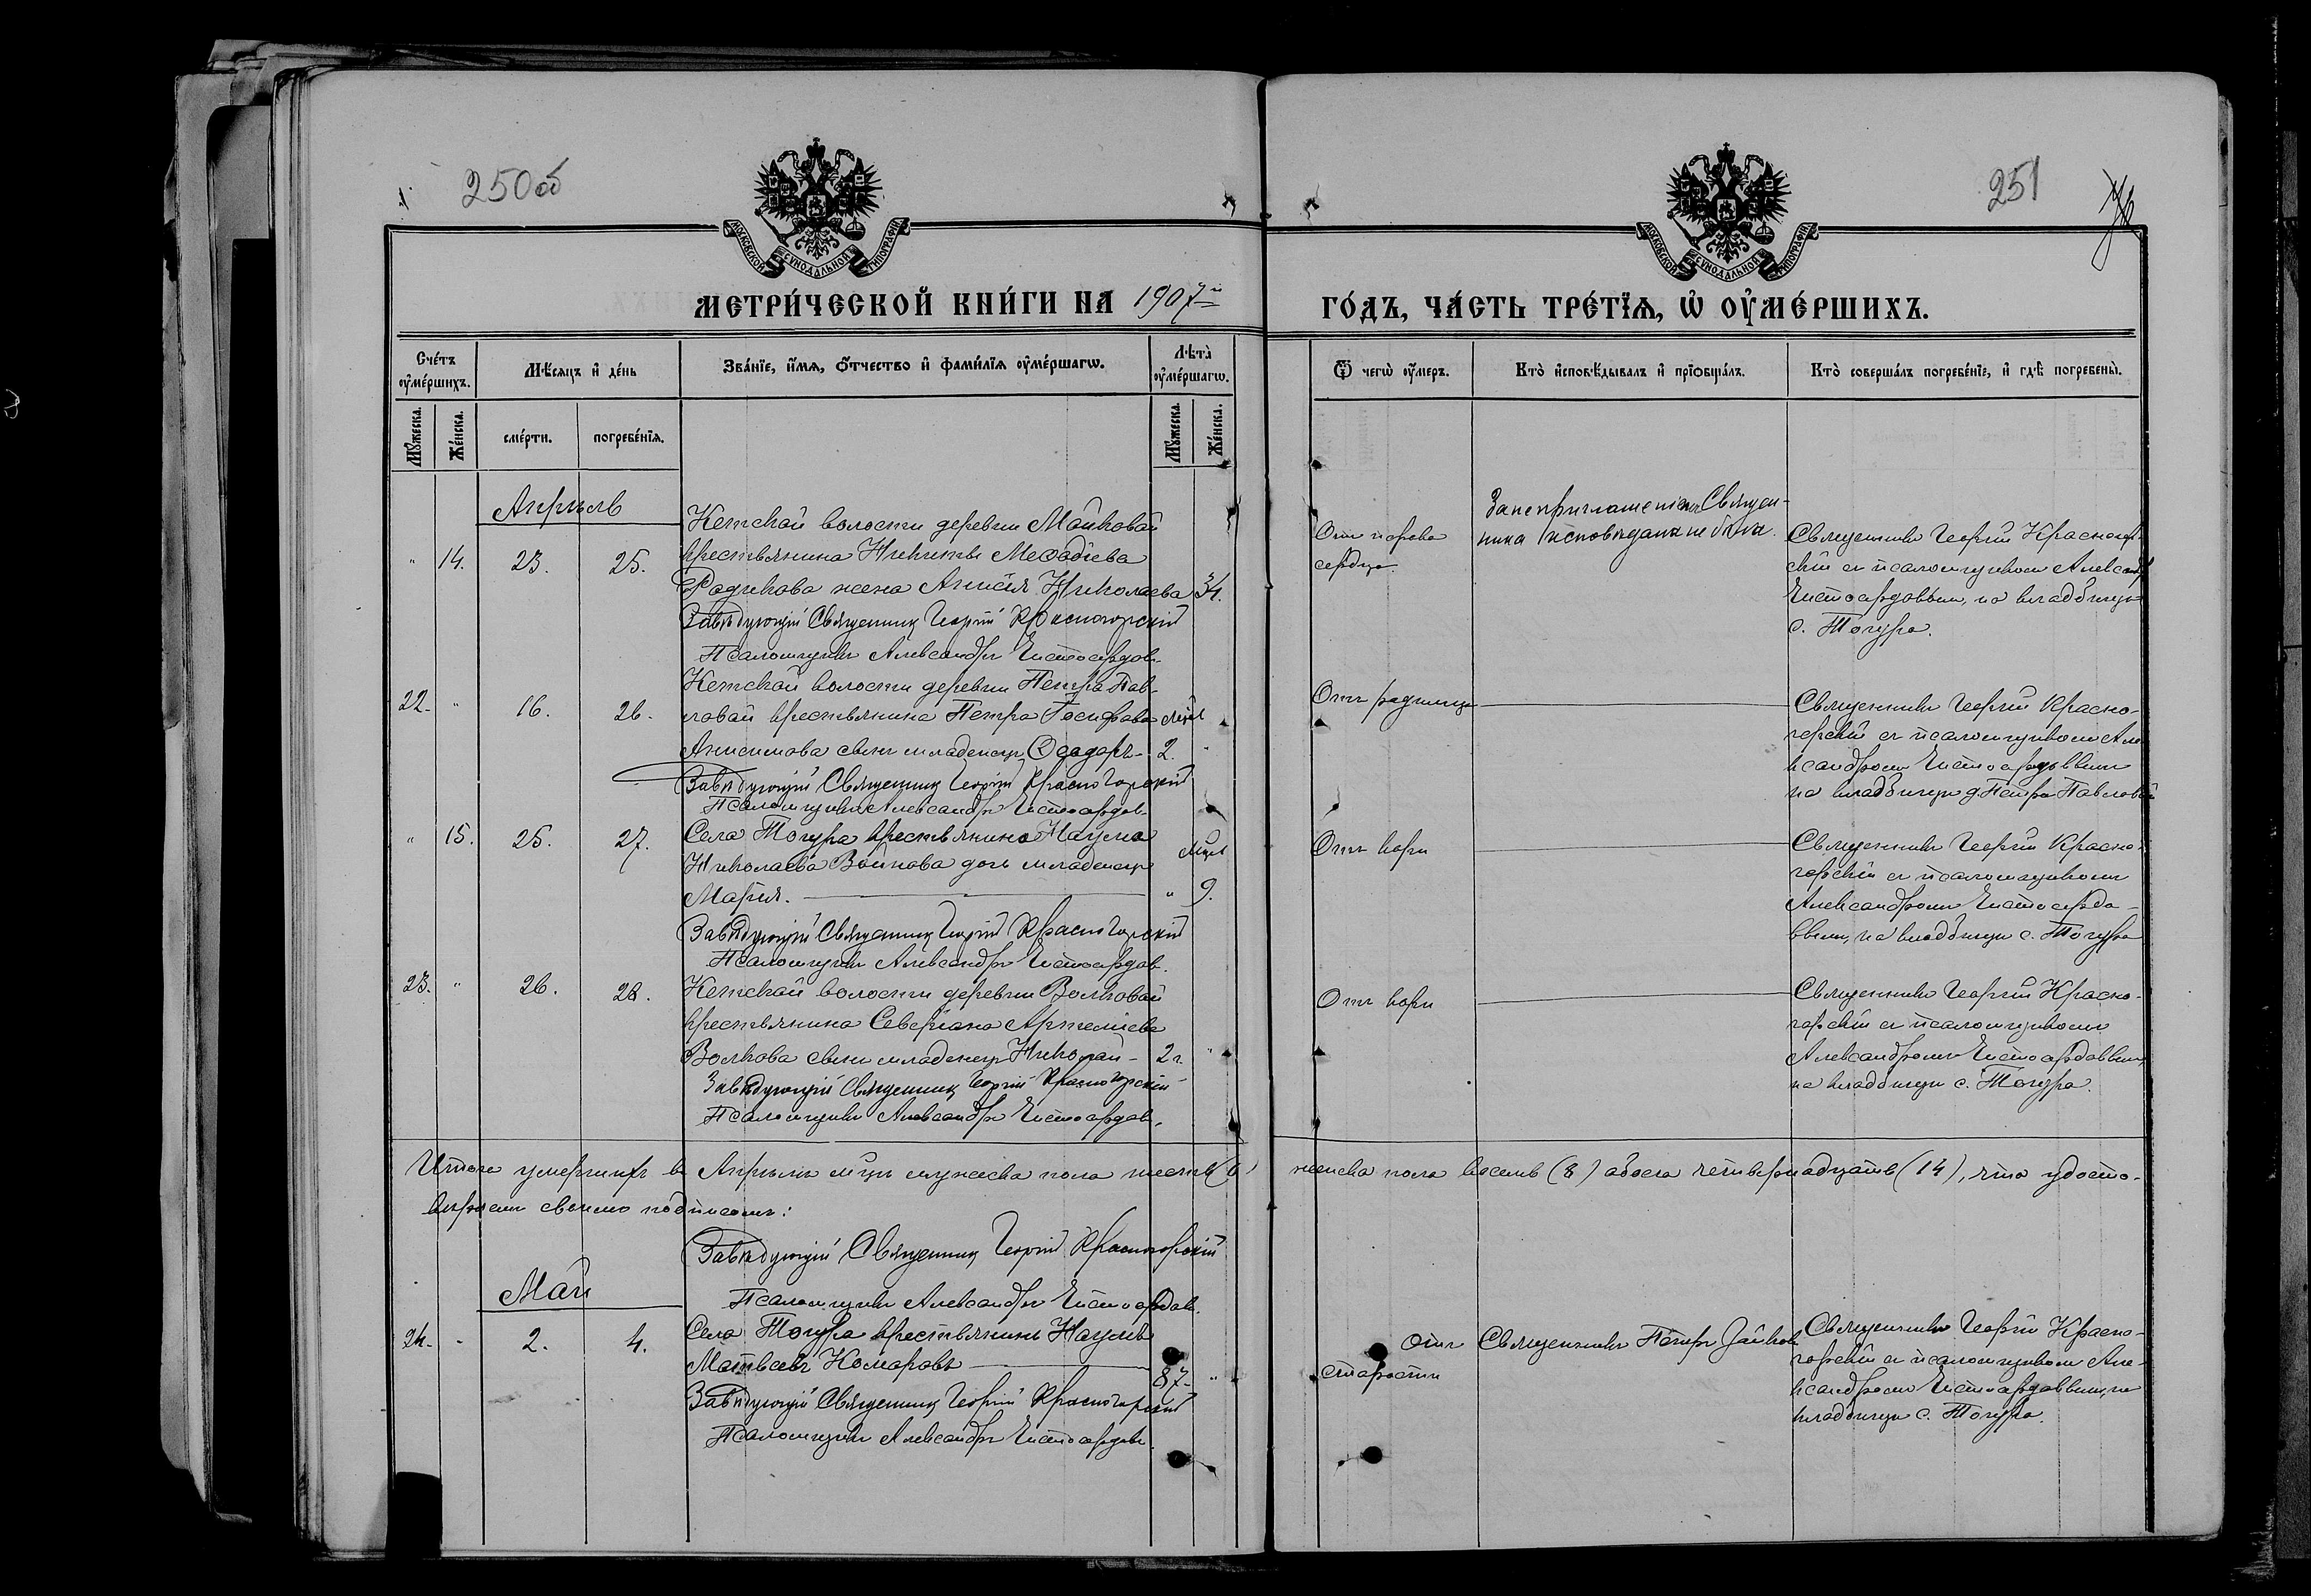 250об
251
МОСКОВСКОЙ СѴНОДАЛЬНОЙ ТИПОГРАФІИ
МОСКОВСКОЙ СѴНОДАЛЬНОЙ ТИПОГРАФІИ
МЕТРИ́ЧЕСКОЙ КНИ́ГИ НА 1907й ГО́ДЪ, ЧА́СТЬ ТРЕ́ТЇѦ, Ѡ҆ ОУ҆МЕ́РШИХЪ.
Сче́тъ оу҆ме́ршихъ.
Мѣ́сяцъ и҆ де́нь
Зва́нїе, и҆́мѧ, ѻ҆́тчество и҆ фами́лїѧ оу҆ме́ршагѡ.
Лѣта̀ оу҆ме́ршагѡ.
Ѿ чегѡ̀ оу҆́меръ.
Кто̀ и҆сповѣ́дывалъ и҆ прїѡбща́лъ.
Кто̀ соверша́лъ погребе́нїе, и҆ гдѣ̀ погребены̀.
Мꙋ́жеска.
Же́нска.
сме́рти.
погребе́нїѧ.
Мꙋ́жеска.
Же́нска.
Апрѣль
" 14. 23. 25.
Кетской волости деревни Майковой
крестьянина Никиты Меѳодіева
Родикова жена Анисія Николаева 34.
Завѣдующій Священникъ Георгій Красногорскій
Псаломщикъ Александръ Чистосердовъ
Отъ порока
сердца.
За неприглашеніемъ Священ-
ника исповѣдана не была.
Священникъ Георгій Красногор-
скій съ псаломщикомъ Александ
Чистосердовымъ, на кладбищѣ
с. Тогура.
22. " 16. 26.
Кетской волости деревни Петра Пав-
ловой крестьянина Петра Іосифова Мѣс.
Анисимова сынъ младенецъ Ѳеодоръ 2. "
Завѣдующій Священникъ Георгій Красногорскій
Псаломщикъ Александръ Чистосердовъ
Отъ родимца
Священникъ Георгій Красно-
горскій съ псаломщикомъ Але
ксандромъ Чистосердовымъ
на кладбищѣ д. Петра Павловой
" 15. 25. 27.
Села Тогура крестьянина Наума
Николаева Войнова дочь младенецъ Мѣс.
Марія. " 9.
Завѣдующій Священникъ Георгій Красногорскій
Псаломщикъ Александръ Чистосердовъ.
Отъ кори
Священникъ Георгій Красно-
горскій съ псаломщикомъ
Александромъ Чистосердо-
вымъ, на кладбищѣ с. Тогура
23. " 26. 28.
Кетской волости деревни Волковой
крестьянина Северіана Артеміева
Волкова сынъ младенецъ Николай - 2 г. "
Завѣдующій Священникъ Георгій Красногорскій
Псаломщикъ Александръ Чистосердовъ.
Отъ кори
Священникъ Георгій Красно-
горскій съ псаломщикомъ
Александромъ Чистосердовымъ,
на кладбищѣ с. Тогура.
Итого умершихъ въ Апрѣлѣ м-цѣ мужеска пола шесть (6) женска пола восемь (8) обоего четырнадцать (14), что удосто-
вѣряемъ своимъ подписомъ:
Завѣдующій Священникъ Георгій Красногорскій
Псаломщикъ Александръ Чистосердовъ.
Май
24. - 2. 4.
Села Тогура крестьянинъ Наумъ
Матвѣевъ Комаровъ 87. "
Завѣдующій Священникъ Георгій Красногорскій
Псаломщикъ Александръ Чистосердовъ.
Отъ
старости
Священникъ Петръ Зайков
Священникъ Георгій Красно-
горскій съ псаломщикомъ Але-
ксандромъ Чистосердовымъ, на
кладбищѣ с. Тогура.